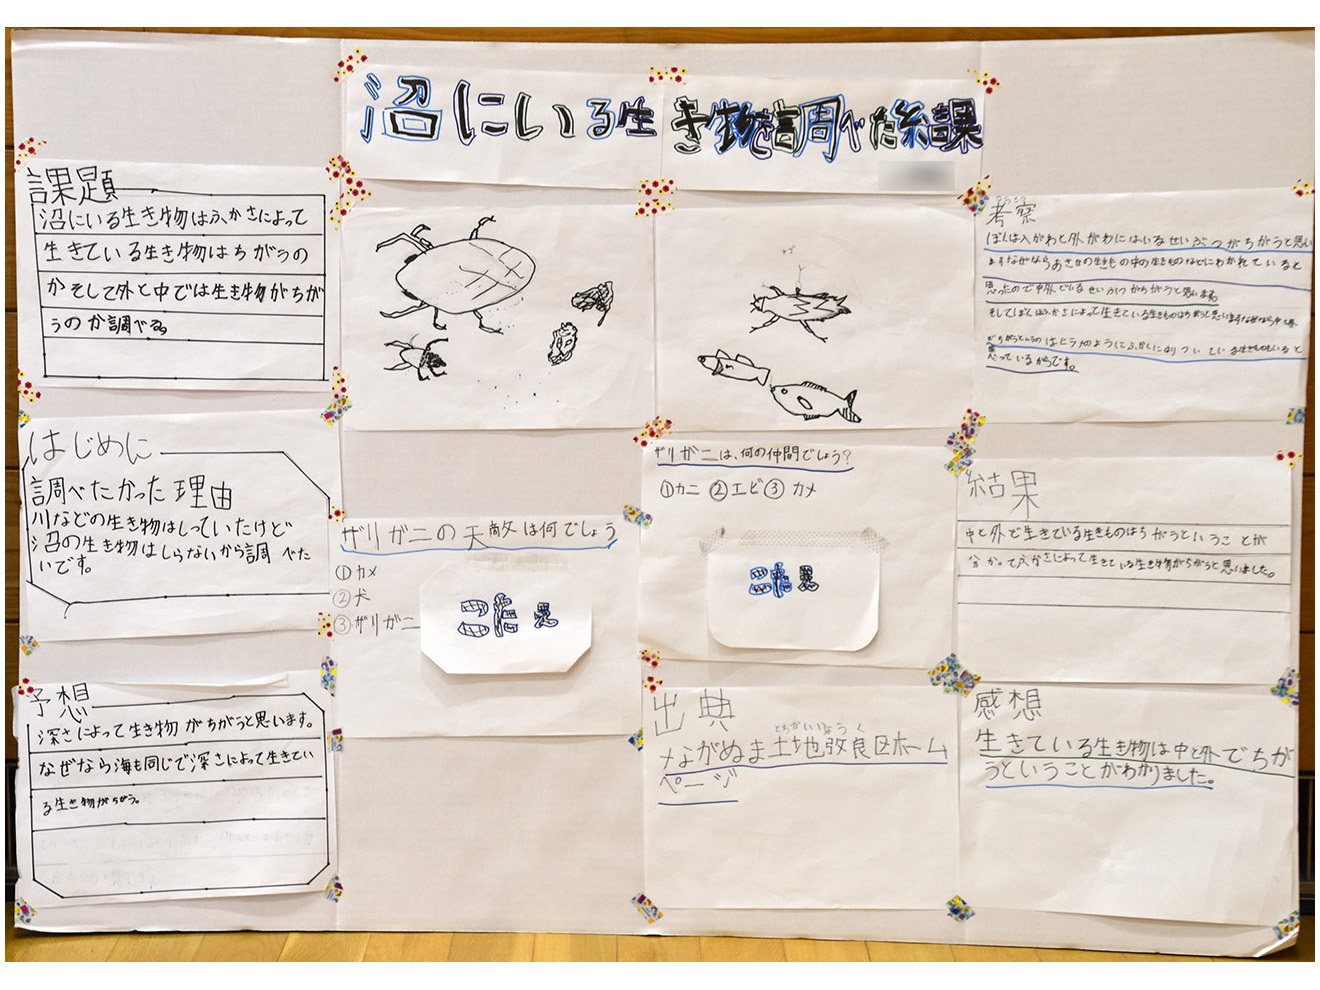 沼にいる生き物を調べた結果
課題
沼にいる生き物はふかさによって
生きている生き物はちがうの
かそして外と中では生き物がちが
うのか調べる。
はじめに
調べたかった理由
川などの生き物はしっていたけど
沼の生き物はしらないから調べた
いです。
予想
深さによって生き物がちがうと思います。
なぜなら海も同じで深さによって生きてい
る生き物がちがう。
ザリガニの天敵は何でしょう
①カメ
②犬
③ザリガニ
こたえ
ザリガニは、何の仲間でしょう?
①カニ ②エビ ③カメ
こたえ
出典
とちかいりょうく
ながぬま土地改良区ホーム
ページ
考察
ぼくは入がわと外がわにはいるせいぶつがちがうと思い
ますなぜなら
中の生きものなどにわかれていると
思ったので中外でいるせいぶつがちがうと思います。
そしてぼくはふかさによって生きている生きものはちがうと思います
はヒラメのようにてふかくにはりついている生きものもいると
べっているからです。
結果
中と外で生きている生きものはちがうということが
分かってふかさによって生きている生き物がちがうと思いました。
感想
生きている生き物は中と外でちが
うということがわかりました。